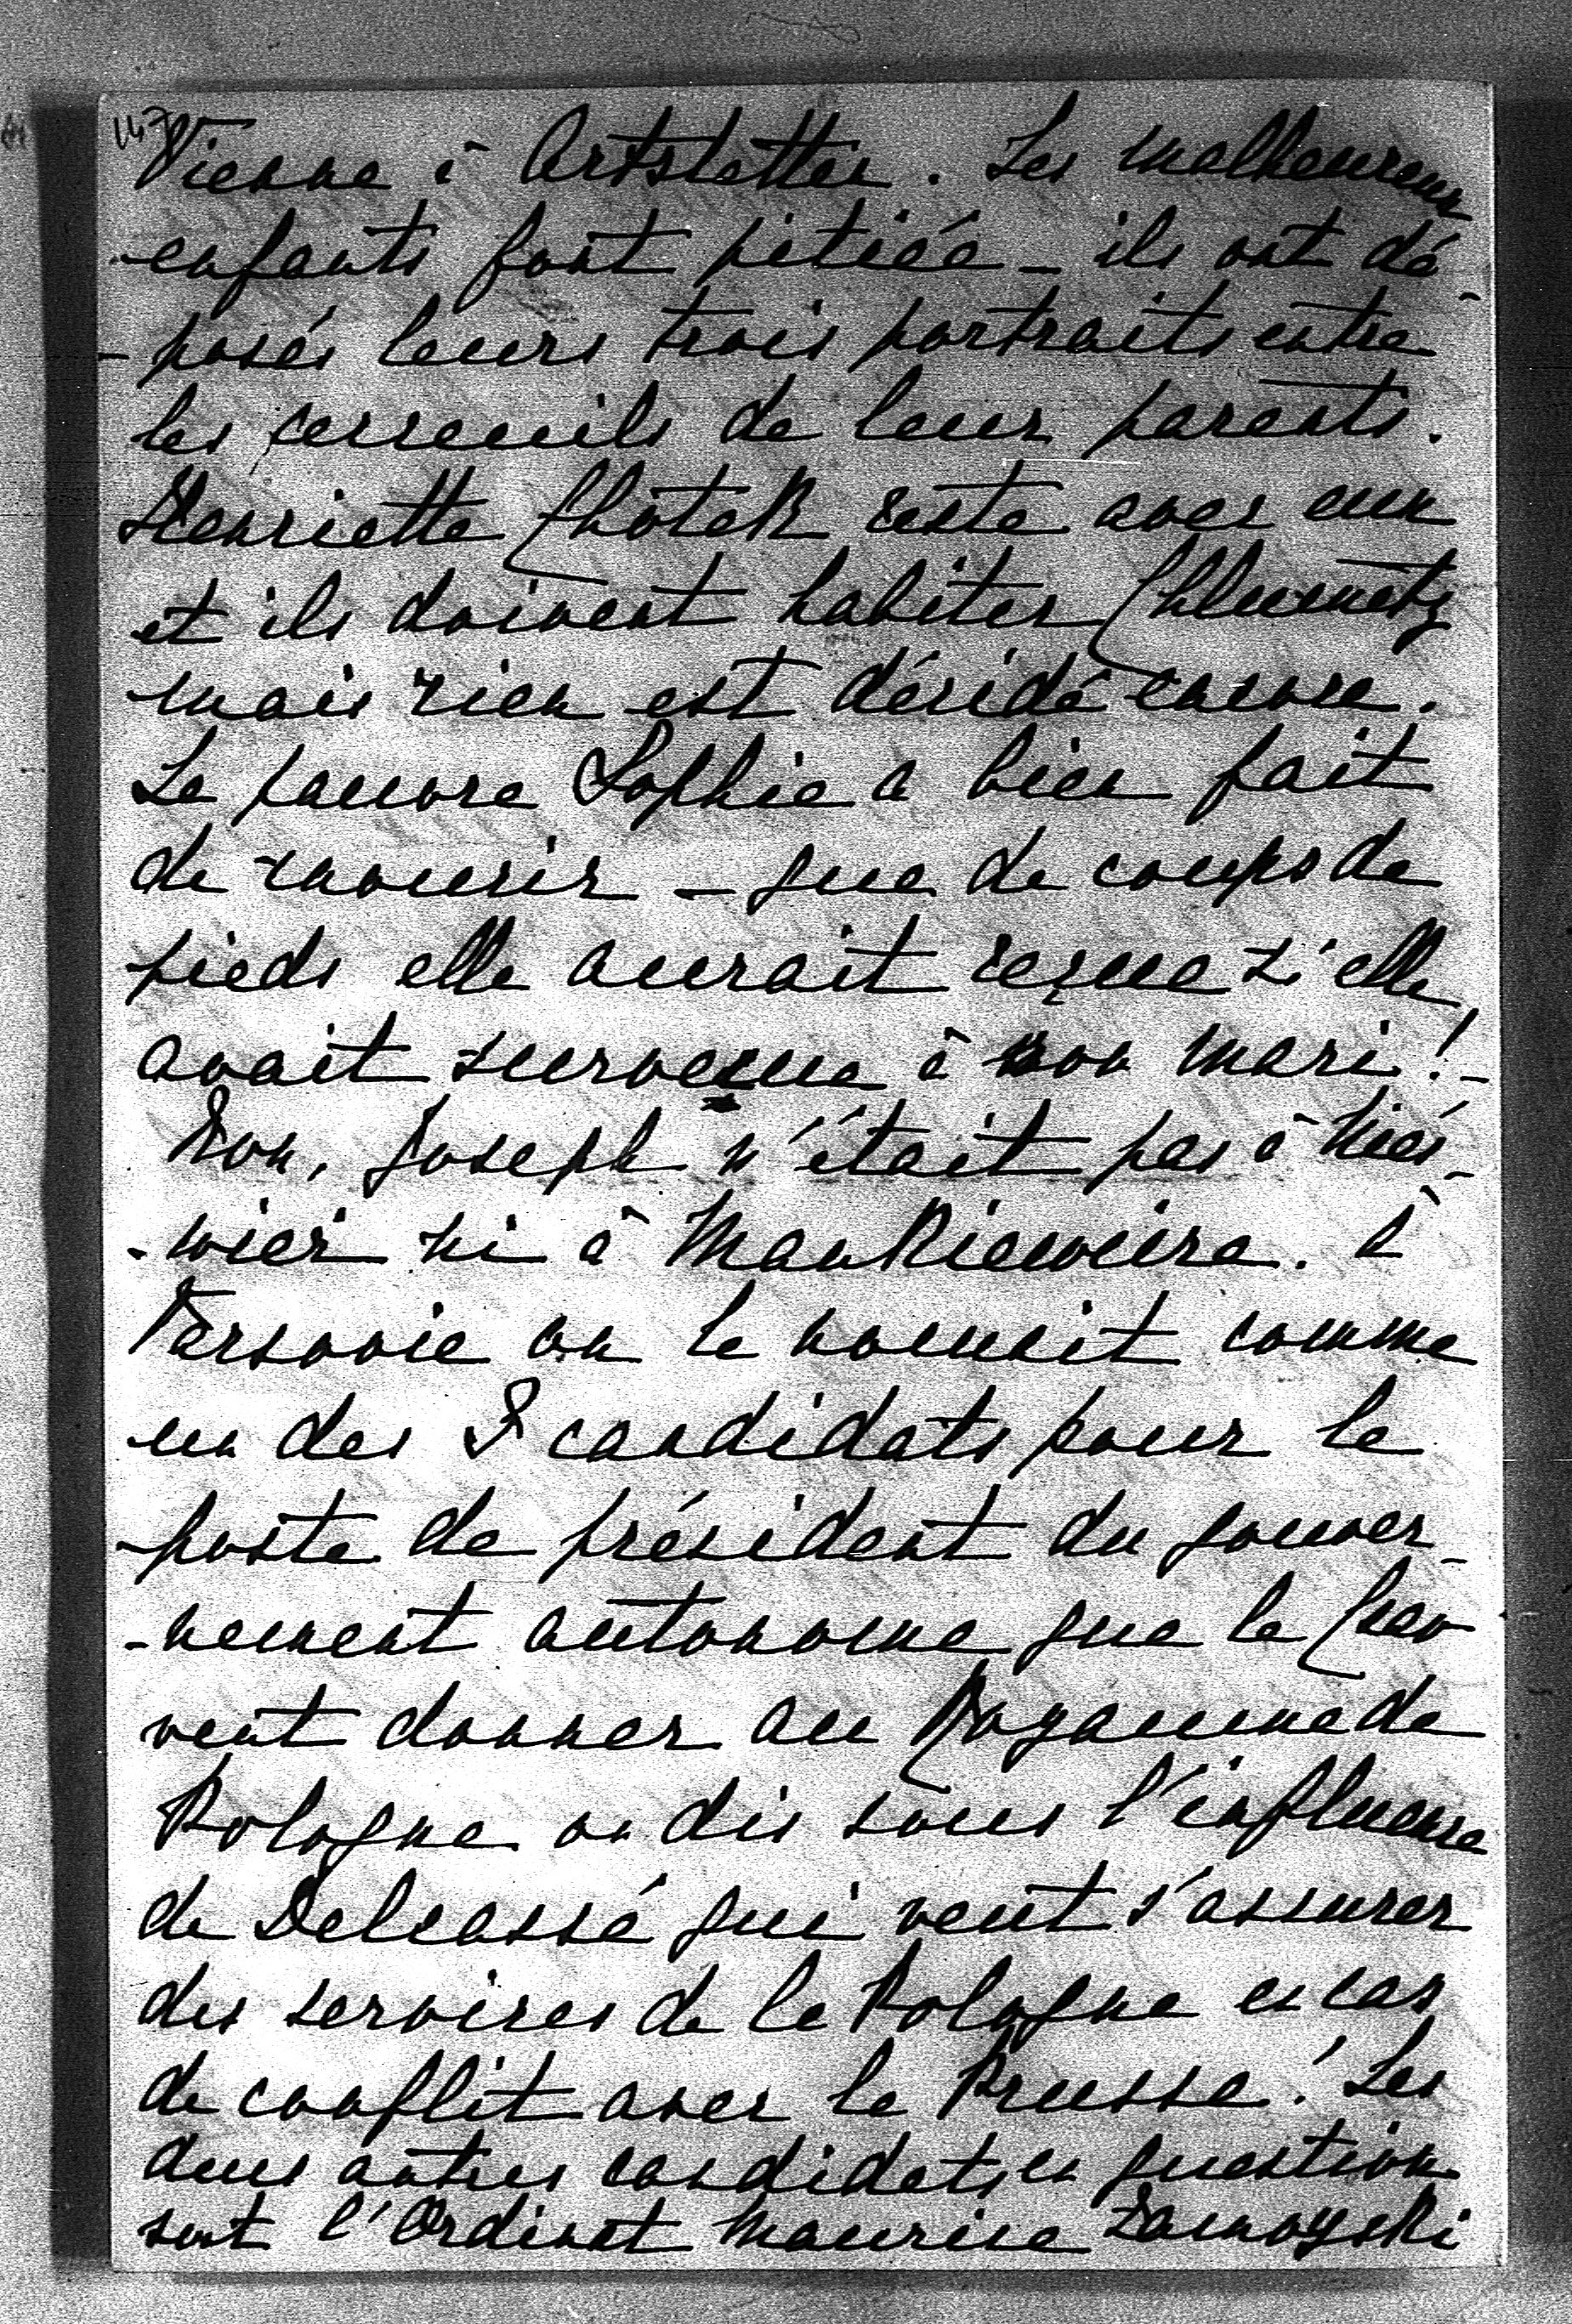 147
Vienne à Artstetten. Les malheureux
enfants font pitiée – ils ont dé-
-posés leurs trois portraits entre
les cerceuils de leur parents.
Henriette Chotek reste avec eux
et ils doivent habiter Chlumetz
mais rien est décidé encore.
La pauvre Sophie a bien fait
de mourir – que de coups de
pieds elle aurait reçue si elle
avait survecue à son mari! –
Non, Joseph n'était pas à Nies-
-wież ni à Mankiewicze. A
Varsovie on le nomait comme
un des 3 candidats pour le
poste de président du gouver-
-nement autonome que le Czar
veut donner au Royaume de
Pologne on dis sous l'influence
de Delcassé qui veut s'assurer
des services de la Pologne en cas
de conflit avec la Prusse! Les
deux autres candidats en question
sont l'Ordinat Maurice Zamoyski